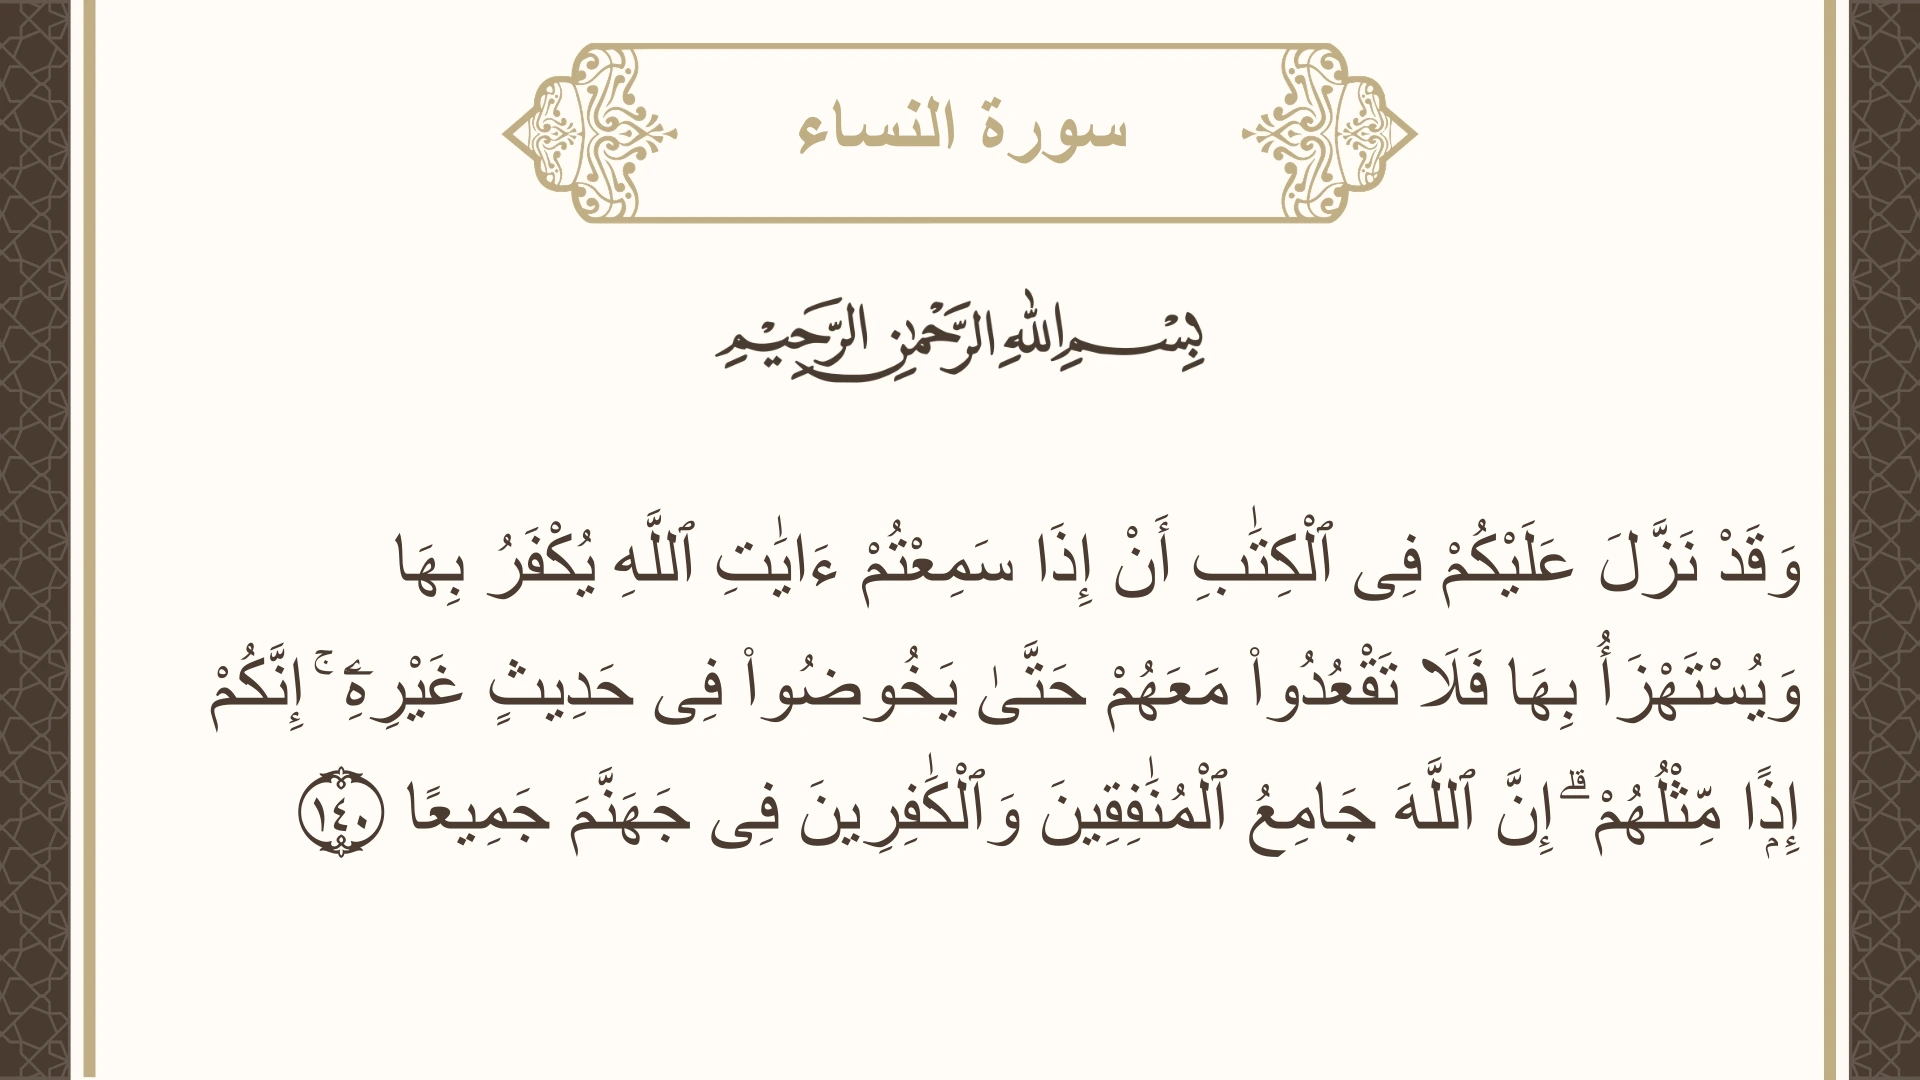 سورة النساء
بِسْمِ اللهِ الرَّحْمٰنِ الرَّحِيْمِ
وَقَدْ نَزَّلَ عَلَيْكُمْ فِى ٱلْكِتَٰبِ أَنْ إِذَا سَمِعْتُمْ ءَايَٰتِ ٱللَّهِ يُكْفَرُ بِهَا
وَيُسْتَهْزَأُ بِهَا فَلَا تَقْعُدُوا۟ مَعَهُمْ حَتَّىٰ يَخُوضُوا۟ فِى حَدِيثٍ غَيْرِهِۦٓ ۚ إِنَّكُمْ
إِذًۭا مِّثْلُهُمْ ۗ إِنَّ ٱللَّهَ جَامِعُ ٱلْمُنَٰفِقِينَ وَٱلْكَٰفِرِينَ فِى جَهَنَّمَ جَمِيعًا ١٤٠